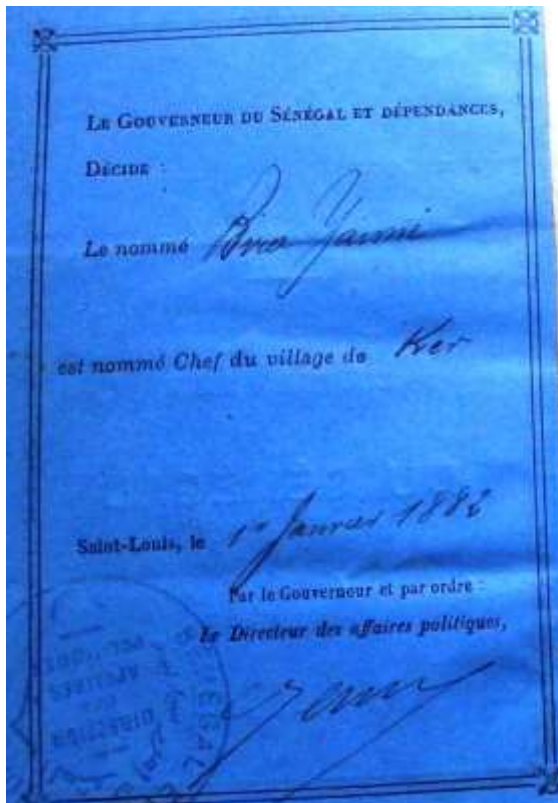 LE GOUVERNEUR DU SÉNÉGAL ET DÉPENDANCES,
DÉCIDE :
Le nommé
est nommé Chef du village de Ker
Saint-Louis, le 1er Janvier 1882
Par le Gouverneur et par ordre :
Le Directeur des affaires politiques,
DIRECTION
AFFAIRES
POLITIQUES
SÉNÉGAL